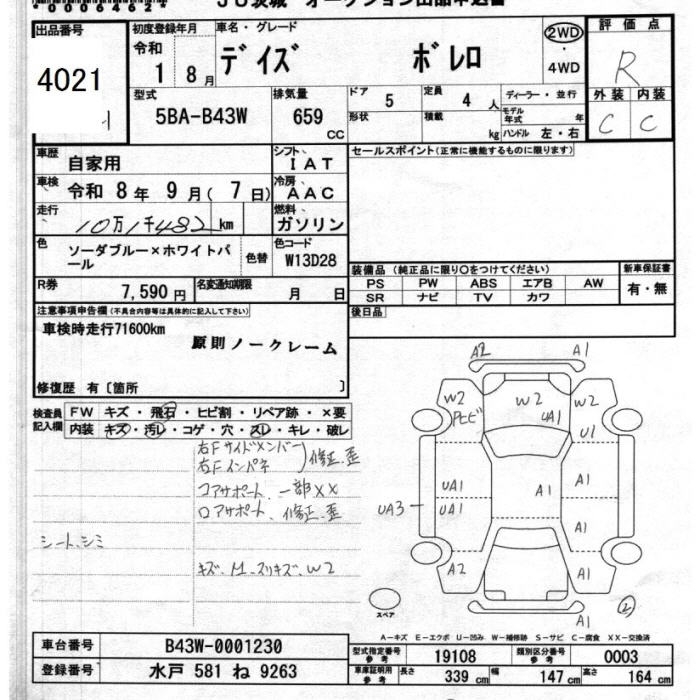 0006462
JU茨城 オークション出品申込書
出品番号 4021
初度登録年月 令和 1 8月
車名・グレード デイズ ボレロ
2WD ・ 4WD
評価点 R
外装 内装 C C
型式 5BA-B43W
排気量 659 CC
ドア 5
形状
定員 4 人
積載 kg
ディーラー・並行
モデル年式 年
ハンドル 左・右
車歴 自家用
シフト IAT
車検 令和 8 年 9 月 ( 7 日)
冷房 AAC
走行 10万1千482 km
燃料 ガソリン
色 ソーダブルー×ホワイトパール
色替
色コード W13D28
R券 7,590 円
名変通知期限 月 日
セールスポイント(正常に機能するものに限ります)
装備品 (純正品に限り○をつけてください)
PS PW ABS エアB AW
SR ナビ TV カワ
新車保証書 有・無
後日品
注意事項申告欄(不具合内容等は具体的に記入して下さい)
車検時走行71600km
原則ノークレーム
修復歴 有〔箇所 〕
検査員記入欄
FW キズ・飛石・ヒビ割・リペア跡・×要
内装 キズ・汚レ・コゲ・穴・スレ・キレ・破レ
右Fサイドメンバー
右Fインパネ 修正.歪
コアサポート 一部××
ロアサポート 修正.歪
シート.シミ
キズ.凹.スリキズ.W2
A2 A1
W2 W2 W2
UA1 U1
UA1 A1 A1
UA3 UA1 A1
A2 A1
A1
スペア
A-キズ E-エクボ U-凹み W-補修跡 S-サビ C-腐食 XX-交換済
車台番号 B43W-0001230
登録番号 水戸 581 ね 9263
型式指定番号 参考 19108
類別区分番号 参考 0003
車庫証明用 参考 長さ 339 cm 幅 147 cm 高さ 164 cm